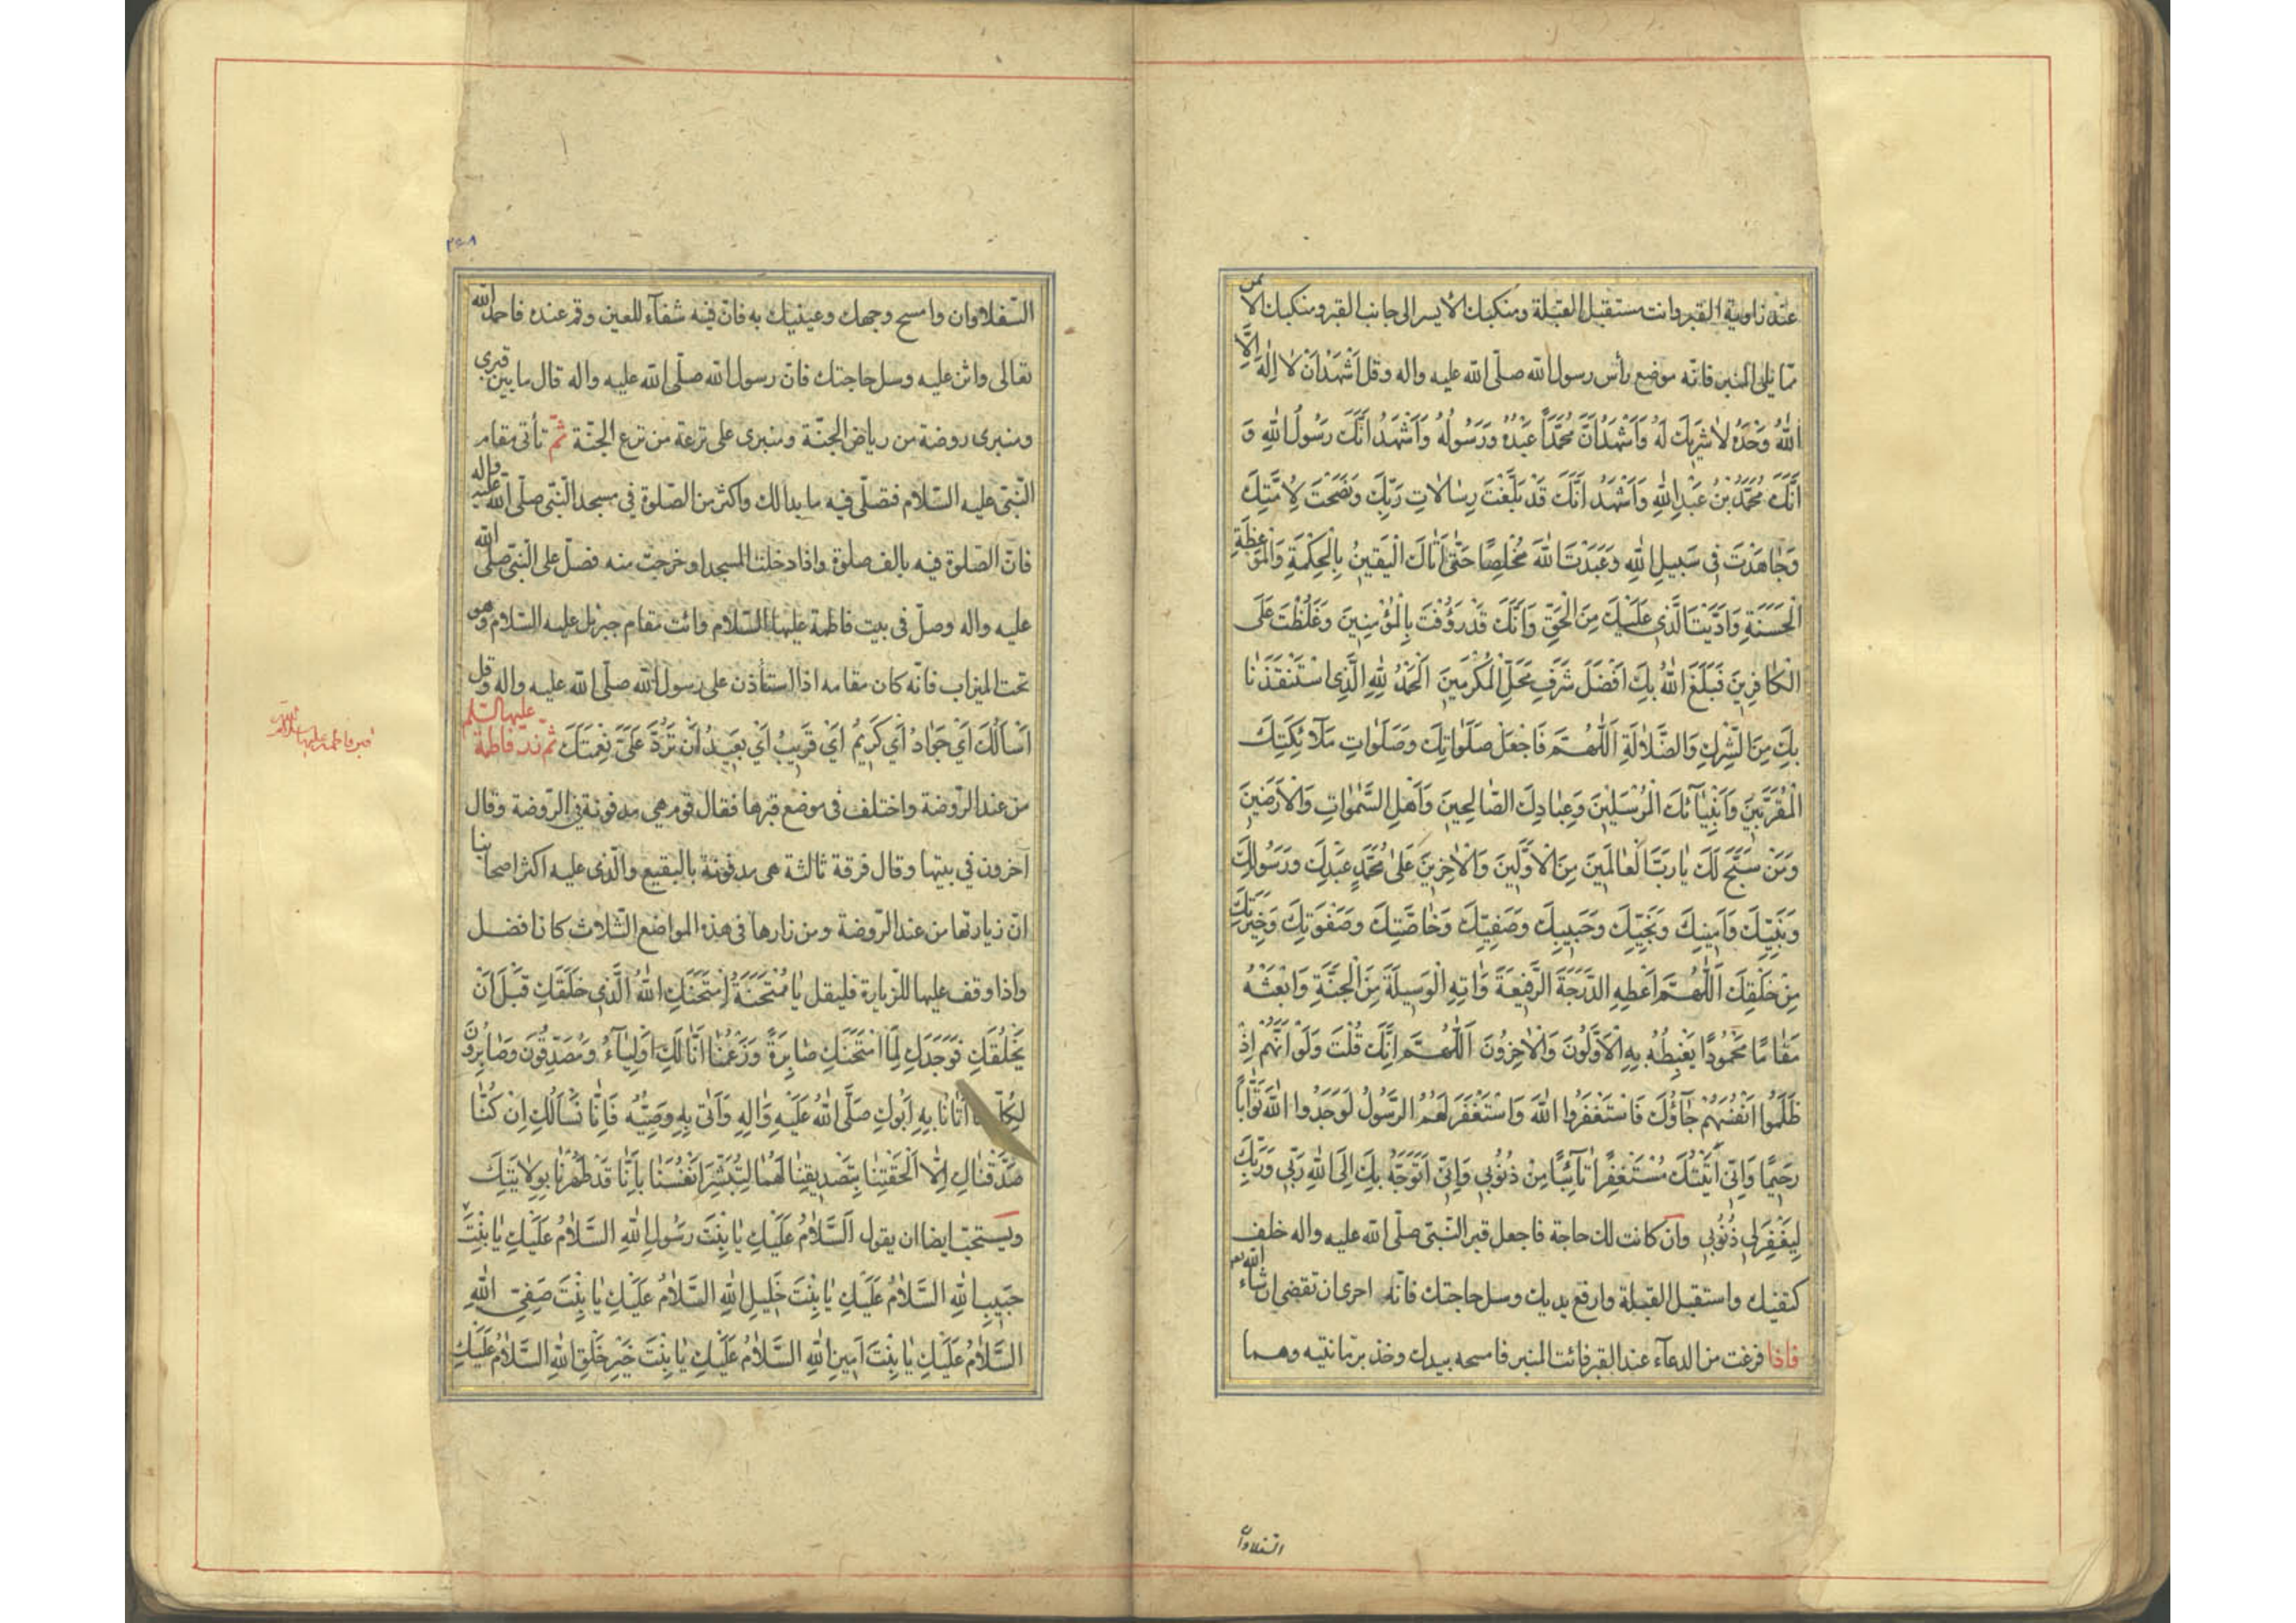 عند زاوية القبر وانت مستقبل القبلة ومنكبك الايسر الى جانب القبر ومنكبك الايمن
ممّا يلى المنبر فانّه موضع رأس رسول الله صلّى الله عليه واله وقل اَشْهَدُ اَنْ لا اِلٰهَ اِلَّا
اللهُ وَحْدَهُ لا شَرِيكَ لَهُ وَاَشْهَدُ اَنَّ مُحَمَّداً عَبْدُهُ وَرَسُولُهُ وَاَشْهَدُ اَنَّكَ رَسُولُ اللهِ وَ
اَنَّكَ مُحَمَّدُ بْنُ عَبْدِ اللهِ وَاَشْهَدُ اَنَّكَ قَدْ بَلَّغْتَ رِسٰالاتِ رَبِّكَ وَنَصَحْتَ لِاُمَّتِكَ
وَجٰاهَدْتَ فِى سَبِيلِ اللهِ وَعَبَدْتَ اللهَ مُخْلِصًا حَتّٰى اَتٰاكَ الْيَقِينُ بِالْحِكْمَةِ وَالْمَوْعِظَةِ
الْحَسَنَةِ وَاَدَّيْتَ الَّذِى عَلَيْكَ مِنَ الْحَقِّ وَاَنَّكَ قَدْ رَؤُفْتَ بِالْمُؤْمِنِينَ وَغَلُظْتَ عَلَى
الْكٰافِرِينَ فَبَلَّغَ اللهُ بِكَ اَفْضَلَ شَرَفِ مَحَلِّ الْمُكْرَمِينَ اَلْحَمْدُ لِلّٰهِ الَّذِى اسْتَنْقَذَنٰا
بِكَ مِنَ الشِّرْكِ وَالضَّلٰالَةِ اَللّٰهُمَّ فَاجْعَلْ صَلَوٰاتِكَ وَصَلَوٰاتِ مَلٰائِكَتِكَ
الْمُقَرَّبِينَ وَاَنْبِيٰآئِكَ الْمُرْسَلِينَ وَعِبٰادِكَ الصّٰالِحِينَ وَاَهْلِ السَّمٰوٰاتِ وَالْاَرَضِينَ
وَمَنْ سَبَّحَ لَكَ يٰا رَبَّ الْعٰالَمِينَ مِنَ الْاَوَّلِينَ وَالْاٰخِرِينَ عَلٰى مُحَمَّدٍ عَبْدِكَ وَرَسُولِكَ
وَنَبِيِّكَ وَاَمِينِكَ وَنَجِيِّكَ وَحَبِيبِكَ وَصَفِيِّكَ وَخٰاصَّتِكَ وَصَفْوَتِكَ وَخِيَرَتِكَ
مِنْ خَلْقِكَ اَللّٰهُمَّ اَعْطِهِ الدَّرَجَةَ الرَّفِيعَةَ وَاٰتِهِ الْوَسِيلَةَ مِنَ الْجَنَّةِ وَابْعَثْهُ
مَقٰامًا مَحْمُودًا يَغْبِطُهُ بِهِ الْاَوَّلُونَ وَالْاٰخِرُونَ اَللّٰهُمَّ اِنَّكَ قُلْتَ وَلَوْ اَنَّهُمْ اِذْ
ظَلَمُوا اَنْفُسَهُمْ جٰآؤُكَ فَاسْتَغْفَرُوا اللهَ وَاسْتَغْفَرَ لَهُمُ الرَّسُولُ لَوَجَدُوا اللهَ تَوّٰاباً
رَحِيمًا وَاِنِّى اَتَيْتُكَ مُسْتَغْفِرًا تٰآئِبًا مِنْ ذُنُوبِى وَاِنِّى اَتَوَجَّهُ بِكَ اِلَى اللهِ رَبِّى وَرَبِّكَ
لِيَغْفِرَ لِى ذُنُوبِى وان كانت لك حاجة فاجعل قبر النّبىّ صلّى الله عليه واله خلف
كتفيك واستقبل القبلة وارفع يديك وسل حاجتك فانّه احرى ان تقضى ان شاء الله
فاذا فرغت من الدعآء عند القبر فائت المنبر فامسحه بيدك وخذ برمّانتيه وهما
السّفلاوان
السّفلاوان وامسح وجهك وعينيك به فانّ فيه شفآء للعين وقم عنده فاحمد الله
تعالى واثن عليه وسل حاجتك فانّ رسول الله صلّى الله عليه واله قال ما بين قبرى
ومنبرى روضة من رياض الجنّة ومنبرى على ترعة من ترع الجنّة ثمّ تأتى مقام
النّبىّ عليه السّلام فتصلّى فيه ما بدا لك واكثر من الصّلوة فى مسجد النّبىّ صلّى الله عليه واله
فانّ الصّلوة فيه بالف صلوة واذا دخلت المسجد او خرجت منه فصلّ على النّبىّ صلّى الله
عليه واله وصلّ فى بيت فاطمة عليها السّلام وائت مقام جبرئيل عليه السّلام وهو
تحت الميزاب فانّه كان مقامه اذا استأذن على رسول الله صلّى الله عليه واله وقل
اَسْاَلُكَ اَىْ جَوٰادُ اَىْ كَرِيمُ اَىْ قَرِيبُ اَىْ بَعِيدُ اَنْ تَرُدَّ عَلَىَّ نِعْمَتَكَ ثمّ تزور فاطمة عليها السّلم
من عند الرّوضة واختلف فى موضع قبرها فقال قوم هى مدفونة فى الرّوضة وقال
آخرون فى بيتها وقال فرقة ثالثة هى مدفونة بالبقيع والّذى عليه اكثر اصحابنا
انّ زيارتها من عند الرّوضة ومن زارها فى هذه المواضع الثّلاث كان افضل
واذا وقف عليها للزّيارة فليقل يٰا مُمْتَحَنَةُ اِمْتَحَنَكِ اللهُ الَّذِى خَلَقَكِ قَبْلَ اَنْ
يَخْلُقَكِ فَوَجَدَكِ لِمَا امْتَحَنَكِ صٰابِرَةً وَزَعَمْنٰا اَنّٰا لَكِ اَوْلِيٰآءُ وَمُصَدِّقُونَ وَصٰابِرُونَ
اَتٰانٰا بِهِ اَبُوكِ صَلَّى اللهُ عَلَيْهِ وَاٰلِهِ وَاَتٰى بِهِ وَصِيُّهُ فَاِنّٰا نَسْاَلُكِ اِنْ كُنّٰا
صَدَّقْنٰاكِ اِلّٰا اَلْحَقْتِنٰا بِتَصْدِيقِنٰا لَهُمٰا لِنُبَشِّرَ اَنْفُسَنٰا بِاَنّٰا قَدْ طَهُرْنٰا بِوِلٰايَتِكِ
ويستحبّ ايضا ان يقول اَلسَّلٰامُ عَلَيْكِ يٰا بِنْتَ رَسُولِ اللهِ السَّلٰامُ عَلَيْكِ يٰا بِنْتَ
حَبِيبِ اللهِ السَّلٰامُ عَلَيْكِ يٰا بِنْتَ خَلِيلِ اللهِ السَّلٰامُ عَلَيْكِ يٰا بِنْتَ صَفِىِّ اللهِ
السَّلٰامُ عَلَيْكِ يٰا بِنْتَ اَمِينِ اللهِ السَّلٰامُ عَلَيْكِ يٰا بِنْتَ خَيْرِ خَلْقِ اللهِ السَّلٰامُ عَلَيْكِ
قبر فاطمه عليها السلام